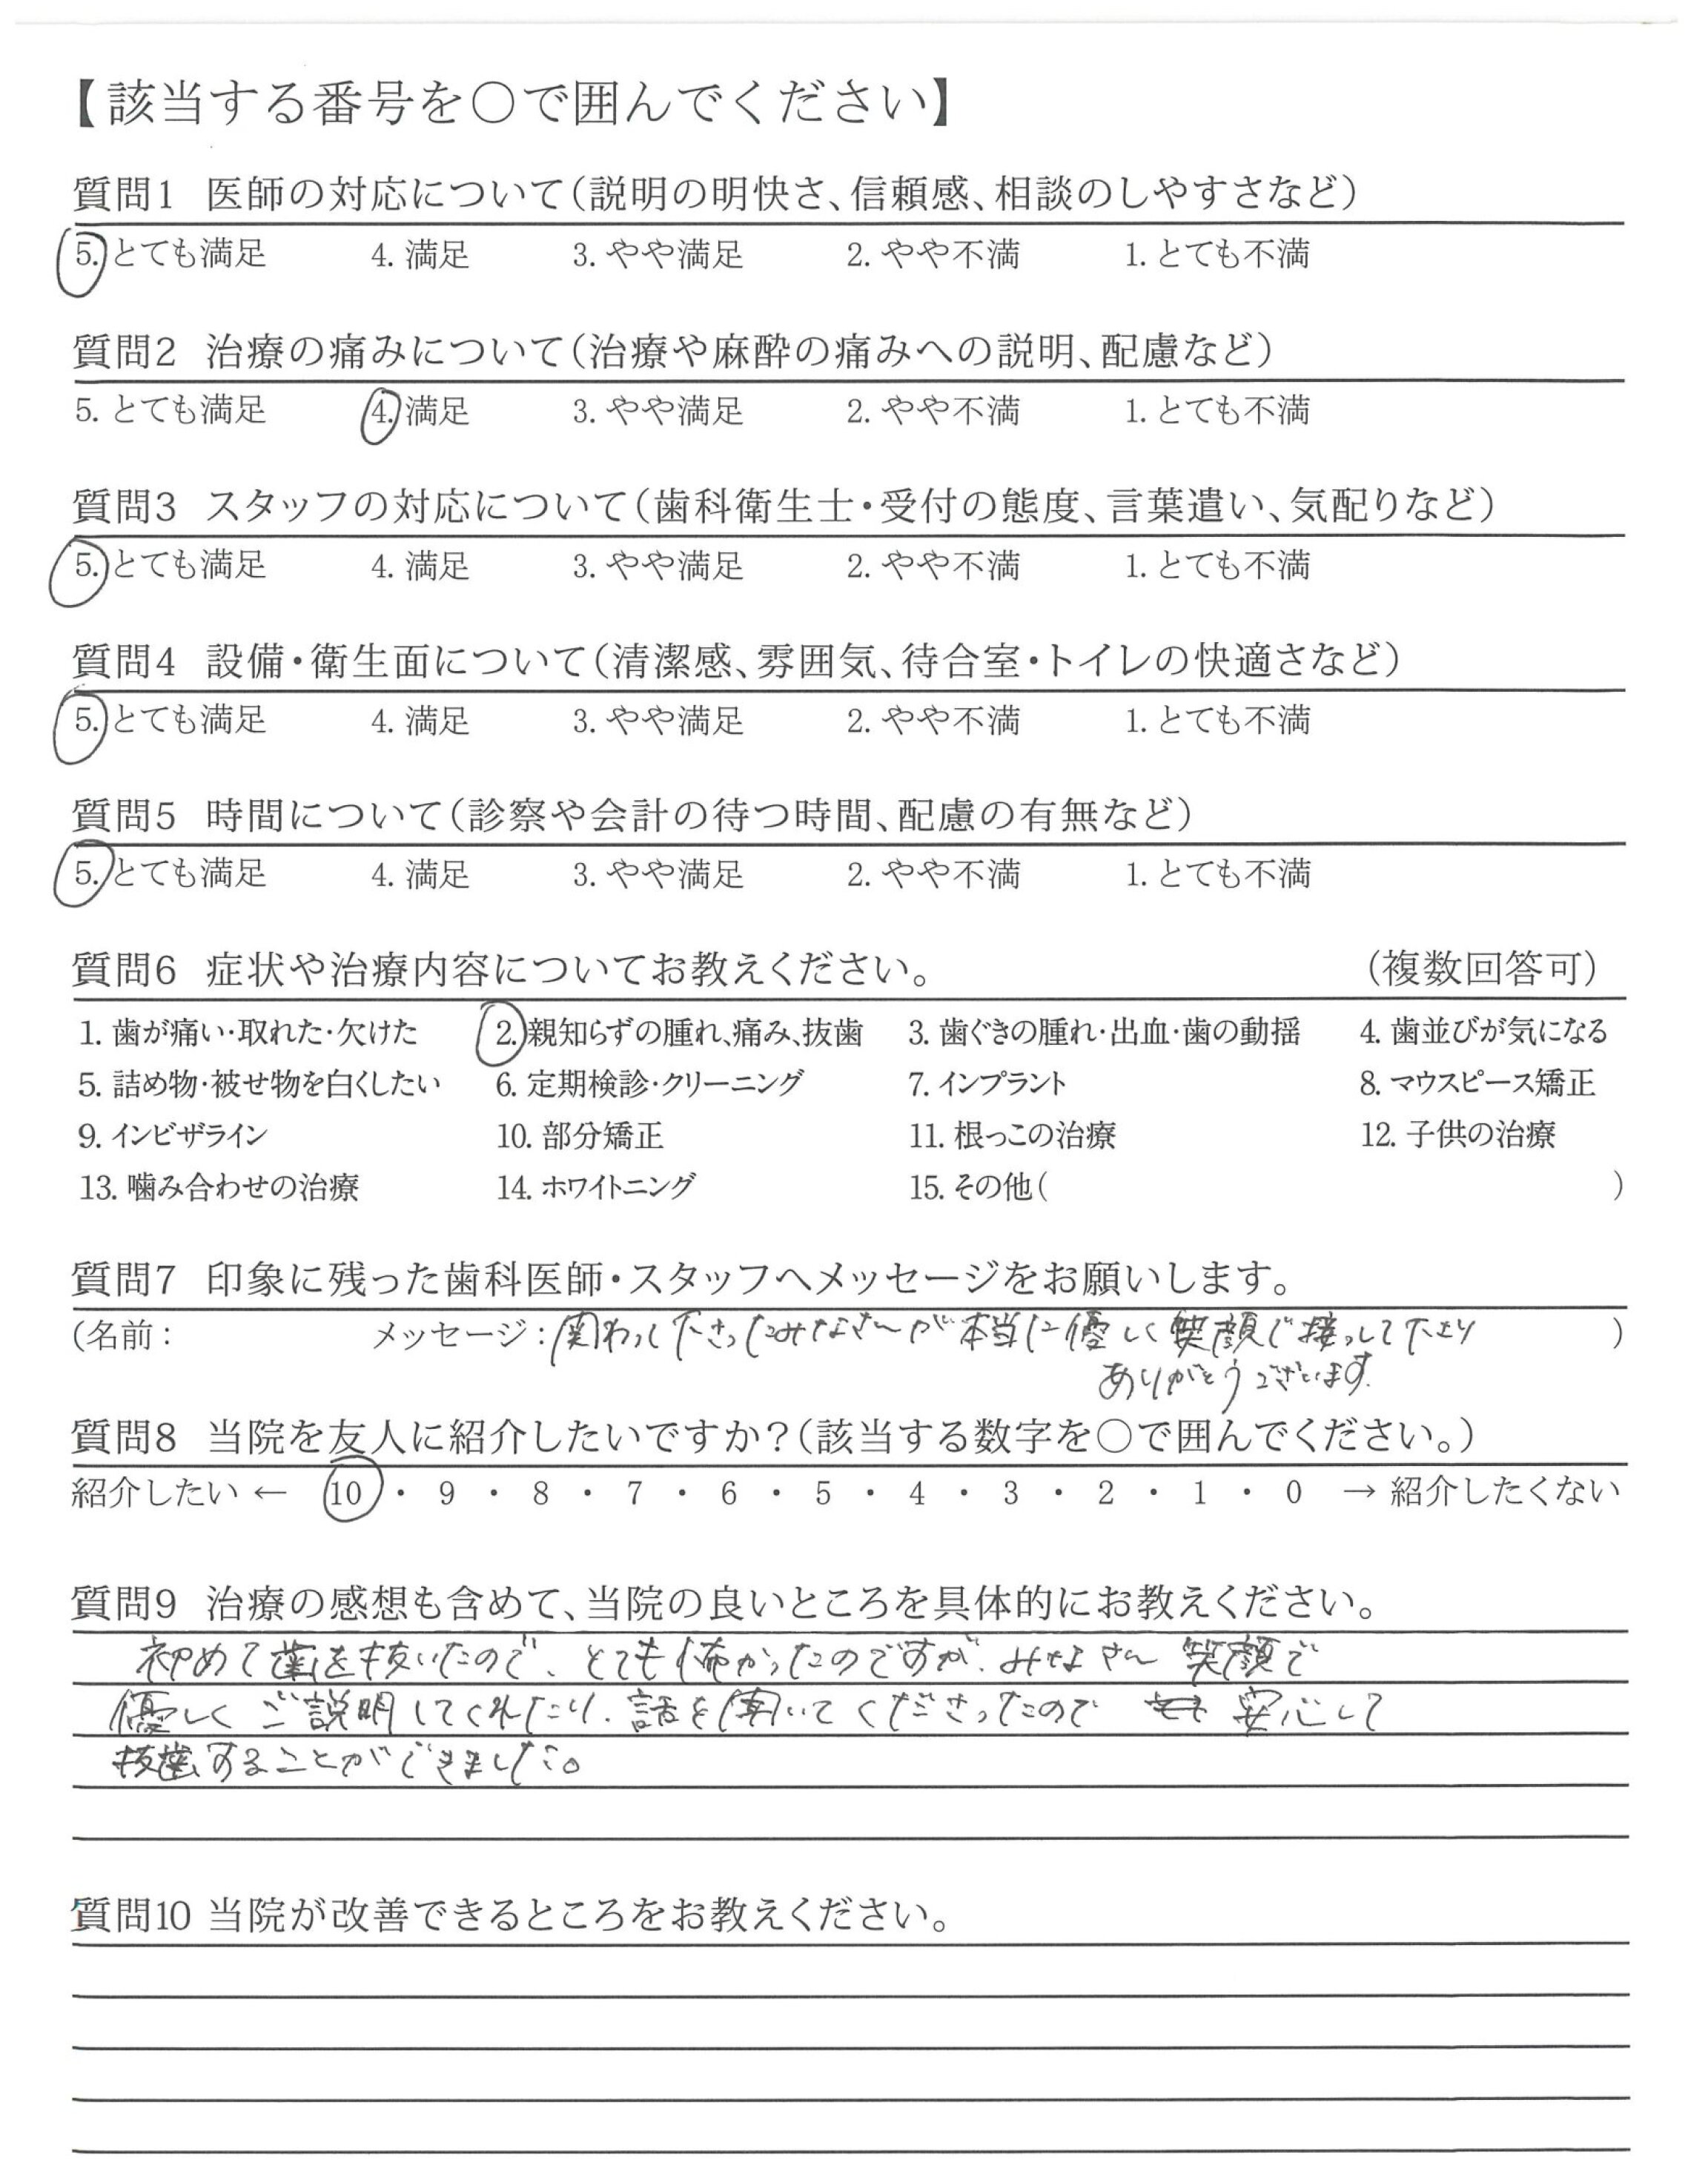 【該当する番号を○で囲んでください】
質問1 医師の対応について(説明の明快さ、信頼感、相談のしやすさなど)
5. とても満足 4. 満足 3. やや満足 2. やや不満 1. とても不満
質問2 治療の痛みについて(治療や麻酔の痛みへの説明、配慮など)
5. とても満足 4. 満足 3. やや満足 2. やや不満 1. とても不満
質問3 スタッフの対応について(歯科衛生士・受付の態度、言葉遣い、気配りなど)
5. とても満足 4. 満足 3. やや満足 2. やや不満 1. とても不満
質問4 設備・衛生面について(清潔感、雰囲気、待合室・トイレの快適さなど)
5. とても満足 4. 満足 3. やや満足 2. やや不満 1. とても不満
質問5 時間について(診察や会計の待つ時間、配慮の有無など)
5. とても満足 4. 満足 3. やや満足 2. やや不満 1. とても不満
質問6 症状や治療内容についてお教えください。 (複数回答可)
1. 歯が痛い・取れた・欠けた 2. 親知らずの腫れ、痛み、抜歯 3. 歯ぐきの腫れ・出血・歯の動揺 4. 歯並びが気になる
5. 詰め物・被せ物を白くしたい 6. 定期検診・クリーニング 7. インプラント 8. マウスピース矯正
9. インビザライン 10. 部分矯正 11. 根っこの治療 12. 子供の治療
13. 噛み合わせの治療 14. ホワイトニング 15. その他( )
質問7 印象に残った歯科医師・スタッフへメッセージをお願いします。
(名前: メッセージ:関わって下さったみなさんが本当に優しく笑顔で接っして下さり )
ありがとうございます.
質問8 当院を友人に紹介したいですか?(該当する数字を○で囲んでください。)
紹介したい ← 10 ・ 9 ・ 8 ・ 7 ・ 6 ・ 5 ・ 4 ・ 3 ・ 2 ・ 1 ・ 0 → 紹介したくない
質問9 治療の感想も含めて、当院の良いところを具体的にお教えください。
初めて歯を抜いたので、とても怖かったのですが、みなさん 笑顔で
優しく ご説明してくれたり、話を聞いてくださったので 安心して
抜歯することができました。
質問10 当院が改善できるところをお教えください。